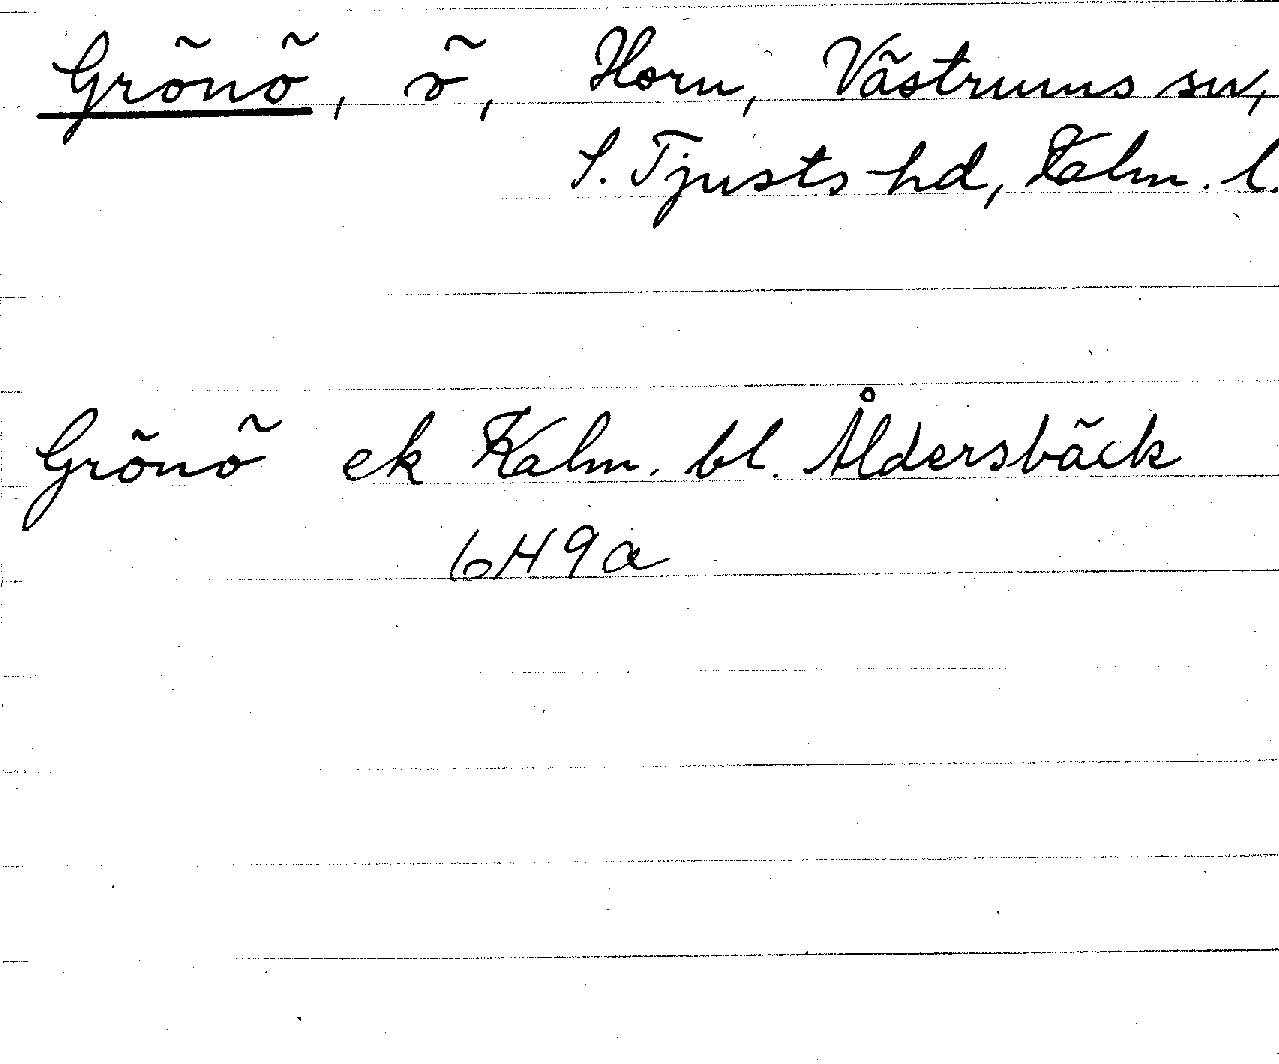 Grönö, ö, Horn, Västrums sn,
S. Tjusts hd, Kalm. l.
Grönö ek Kalm. bl. Åldersbäck
6H9a